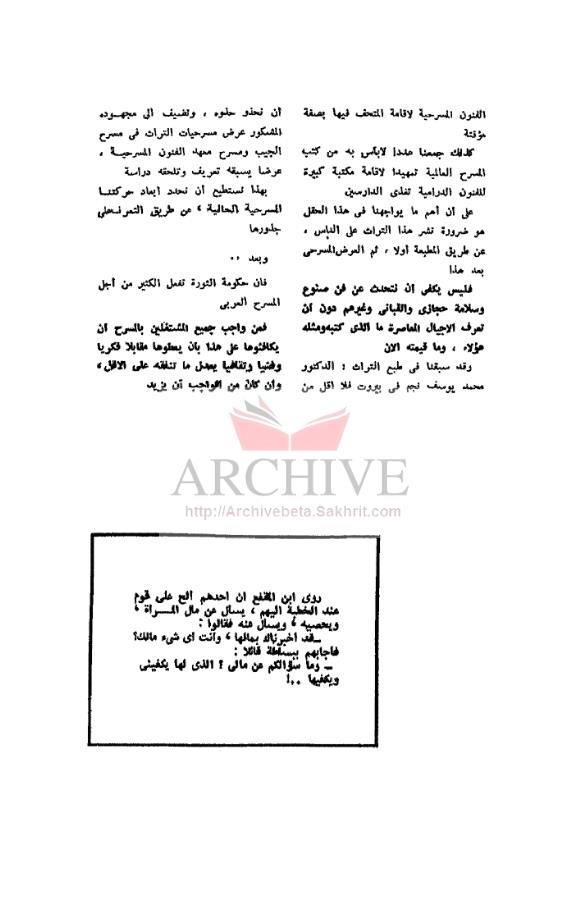 الفنون المسرحية لاقامة المتحف فيها بصفة
مؤقتة
كذلك جمعنا عددا لابأس به من كتب
المسرح العالمية تمهيدا لاقامة مكتبة كبيرة
للفنون الدرامية تغذى الدارسين
على أن أهم ما يواجهنا فى هذا الحقل
هو ضرورة نشر هذا التراث على الناس ،
عن طريق المطبعة أولا ، ثم العرض المسرحى
بعد هذا
فليس يكفى أن نتحدث عن فن صنوع
وسلامة حجازى والقبانى وغيرهم دون أن
تعرف الاجيال المعاصرة ما الذى كتبه ومثله
هؤلاء ، وما قيمته الان
وقد سبقنا فى طبع التراث : الدكتور
محمد يوسف نجم فى بيروت فلا أقل من
أن نحذو حذوه ، ونضيف الى مجهوده
المشكور عرض مسرحيات التراث فى مسرح
الجيب ومسرح معهد الفنون المسرحية ،
عرضا يسبقه تعريف وتلحقه دراسة
بهذا نستطيع أن نحدد أبعاد حركتنا
المسرحية الحالية ، عن طريق التعرف على
جذورها
وبعد ..
فان حكومة الثورة تفعل الكثير من أجل
المسرح العربى
فمن واجب جميع المشتغلين بالمسرح أن
يكافئوها على هذا بأن يعطوها مقابلا فكريا
وفنيا وثقافيا يعدل ما تنفقه على الاقل ،
وان كان من الواجب أن يزيد
ARCHIVE
http://Archivebeta.Sakhrit.com
روى ابن المقفع ان احدهم الح على قوم
عند الخطبة اليهم ، يسأل عن مال المــرأة ،
ويحصيه ، ويسأل عنه فقالوا :
ــ قد اخبرناك بمالها ، وأنت اى شىء مالك؟
فأجابهم ببساطة قائلا :
ــ وما سؤالكم عن مالى ؟ الذى لها يكفينى
ويكفيها ..!